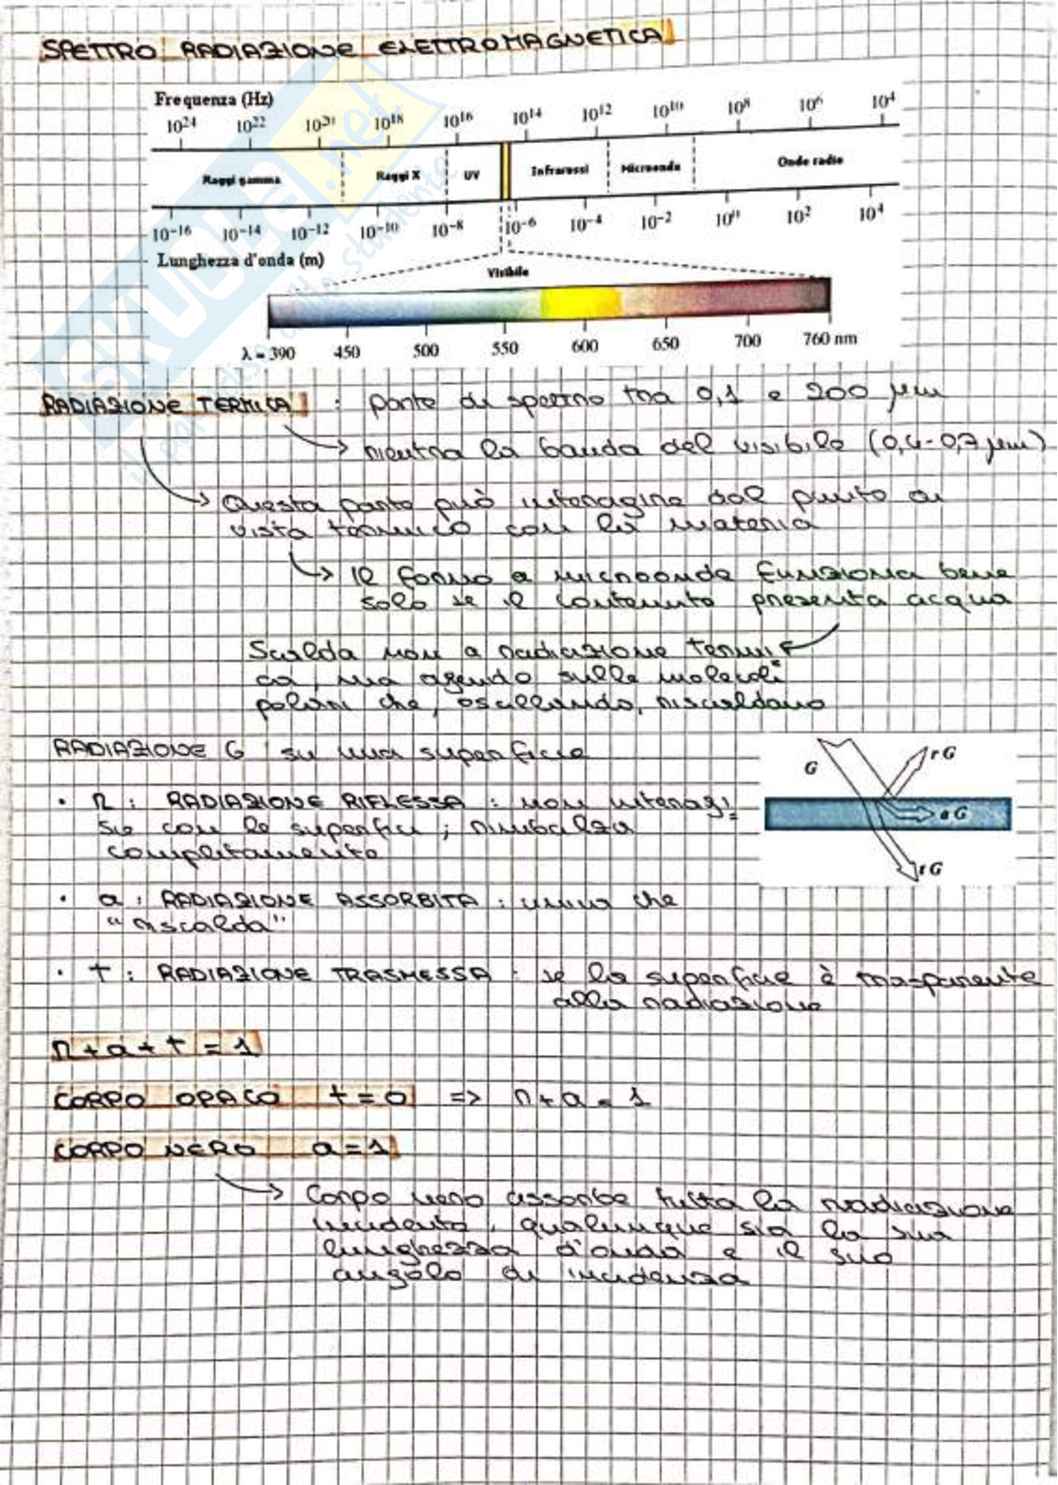 SPETTRO RADIAZIONE ELETTROMAGNETICA
Frequenza (Hz)
10²⁴ 10²² 10²⁰ 10¹⁸ 10¹⁶ 10¹⁴ 10¹² 10¹⁰ 10⁸ 10⁶ 10⁴
Raggi gamma Raggi X UV Infrarossi Microonde Onde radio
10⁻¹⁶ 10⁻¹⁴ 10⁻¹² 10⁻¹⁰ 10⁻⁸ 10⁻⁶ 10⁻⁴ 10⁻² 10⁰ 10² 10⁴
Lunghezza d'onda (m)
Visibile
λ = 390 450 500 550 600 650 700 760 nm
RADIAZIONE TERMICA : parte di spettro tra 0,1 e 200 μm
→ rientra la banda del visibile (0,4-0,7 μm)
→ Questa parte può interagire dal punto di
vista termico con la materia
→ Il forno a microonde funziona bene
solo se il contenuto presenta acqua
Scalda non a radiazione termi
ca, ma agendo sulle molecole
polari che, oscillando, riscaldano
RADIAZIONE G su una superficie
G rG
aG
tG
• r : RADIAZIONE RIFLESSA : non interagi
sce con la superficie ; rimbalza
completamente
• a : RADIAZIONE ASSORBITA : unica che
"riscalda"
• t : RADIAZIONE TRASMESSA : se la superficie è trasparente
alla radiazione
r+a+t = 1
CORPO OPACO t=0 => r+a = 1
CORPO NERO a=1
→ Corpo nero assorbe tutta la radiazione
incidente, qualunque sia la sua
lunghezza d'onda e il suo
angolo di incidenza
SKUOLA.net